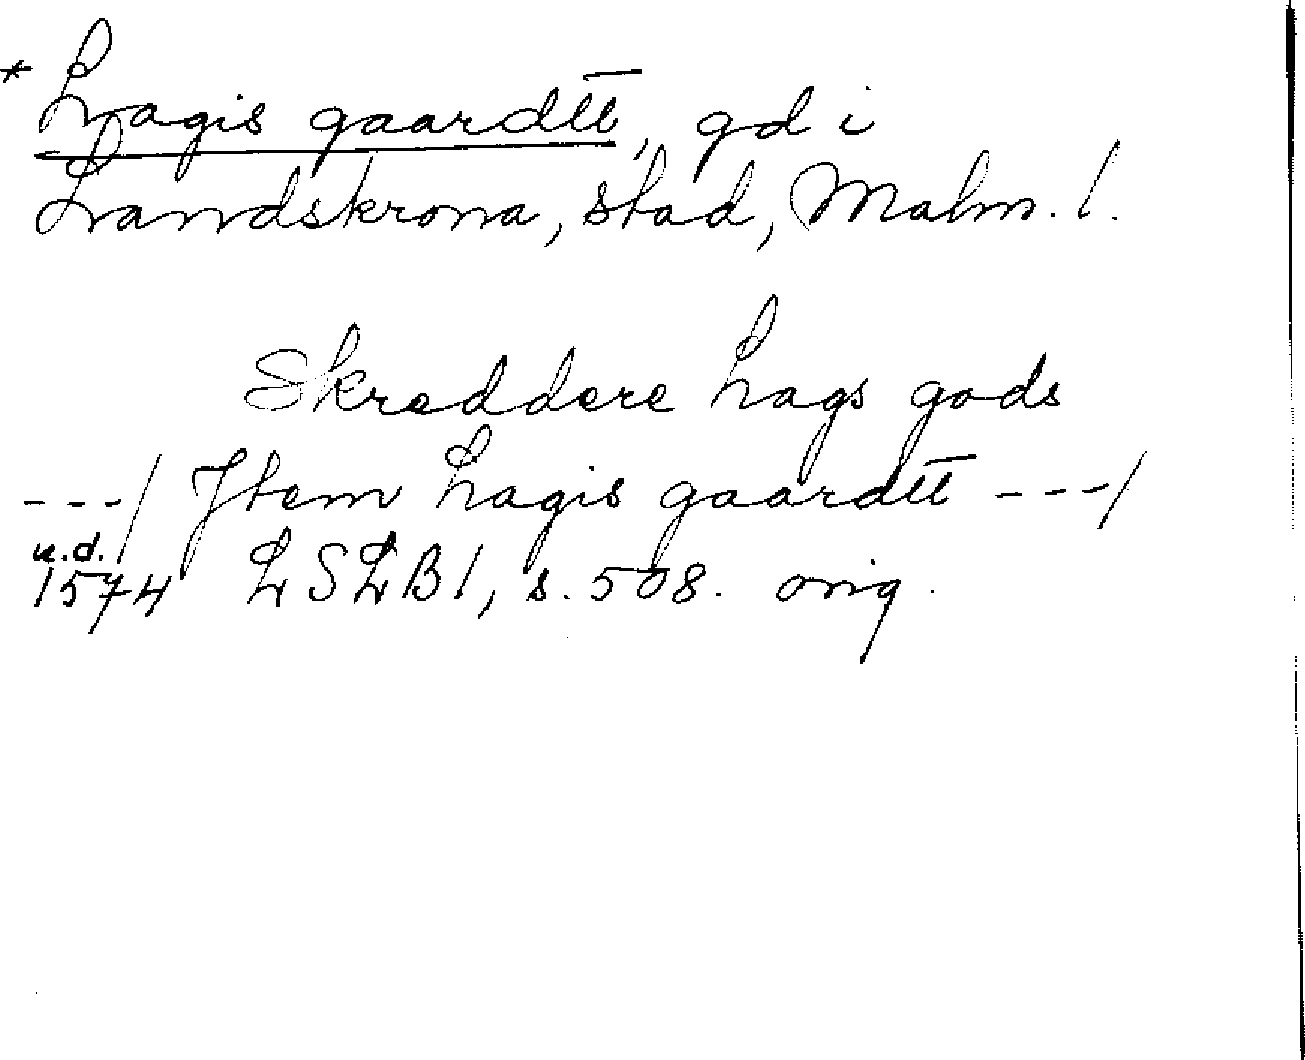 * Lagis gaardtt̅, gd i
Landskrona, stad, Malm. l.
Skreddere Lags gods
---/ Jtem Lagis gaardtt̅ ---/
u.d.
1574 LSLB1, s. 508. orig.